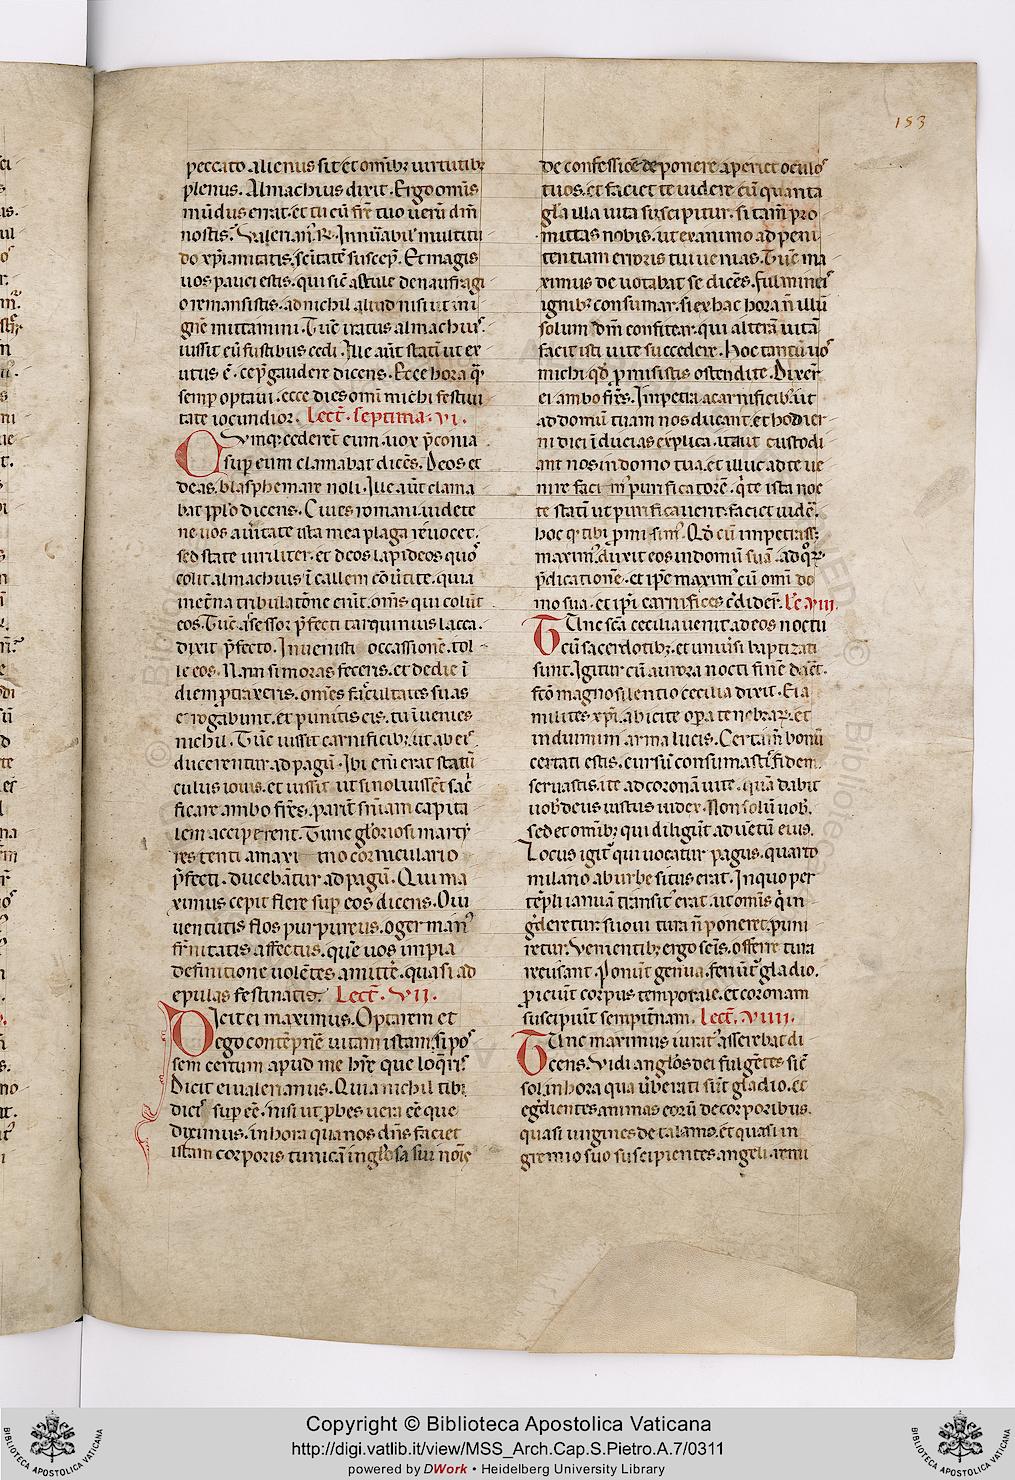 153
peccato alienus sit et omībꝫ uirtutibꝫ
plenus. Almachius dixit. Ergo omīs
mūdus errat. et tu cū fr̄e tuo uerū dm̄
nostis.
do xp̄ianitatis. sc̄itatē suscep̄. Et magis
uos pauci estis. qui sic̄ astule de naufragi
o remansistis. ad nichil aliud nisi ut in i
gnē mittamini. Tūc iratus almachius.
iussit eū fustibus cedi. Ille aūt statī ut ex
utus ē. cep̄ gaudere dicens. Ecce hora q̄
semp̄ optaui. ecce dies omī michi festiui
tate iocundior. Lect̄. septima. vi.
Cvmqꝫ cederet̄ eum. uox p̄conia
sup̄ eum clamabat dicēs. Deos et
deas blasphemare noli. Ille aūt clama
bat pp̄lo dicens. Ciues romani uidete
ne uos a uītate ista mea plaga reuocet.
sed state uiriliter. et deos lapideos quos
colit almachius ī callem cōuītite. quia
in et̄na tribulatōne erūt. omīs qui colūt
eos. Tūc assessor p̄fecti tarquinius lacca.
dixit p̄fecto. Inuenisti occassionē. tol
le eos. Nam si moras feceris. et de die ī
diem p̄traxeris. omēs facultates suas
erogabunt. et punitis eis. tu ī uenies
nichil. Tūc iussit carnificibꝫ. ut ab eis
ducerentur ad pagū. Ibi eni erat statū
culus iouis. et iussit ut si noluissēt sac̄
ficare ambo fr̄es. parit̄ sn̄iam capita
lem acciperent. Tunc gloriosi marty
res tenti a maxi mo corniculario
p̄fecti. ducebātur ad pagū. Qui ma
ximus cepit flere sup̄ eos dicens. O iu
uentutis flos purpureus. o germān
fr̄nitatis affectus. quē uos impia
definitione uolētes amittē. quasi ad
epulas festinatis. Lect̄. VII.
Dicit ei maximus. Optarem et
ego contēpnē uitam istam. si pos
sem certum apud me hr̄e que loq̄ris.
Dicit ei ualerianus. Quia nichil tibi
dicis sup̄ eē. nisi ut p̄bes uera eē que
diximus. in hora qua nos dn̄s faciet
istam corporis tunicā in glosa sui noīe
de confessiōe deponere aperiet oculos
tuos. et faciet te uidere cū quanta
gl̄a illa uita suscipitur. si tam̄ pro
mittas nobis. ut ex animo ad peni
tentiam erroris tui uenias. Tūc ma
ximus deuotabat se dicēs. Fulmineis
ignibꝫ consumar. si ex hac hora n̄ illū
solum dm̄ confitear. qui alterā uitā
facit isti uite succedere. Hoc tantū uos
michi qd̄ p̄misistis ostendite. Dixer̄t
ei ambo fr̄es. Impetra a carnificibꝫ. ut
ad domū tuam nos ducant. et hodier
ni diei īducias explica. ita ut custodi
ant nos in domo tua. et illuc ad te ue
nire faciam̄ purificatorē. q̄ te ista noc
te statī ut purificauerit. faciet uidē.
hoc q̄ tibi p̄misim̄. Qd̄ cū impetrass;
maxim̄. duxit eos in domū suā. ad qoꝝ
p̄dicationē. et ip̄e maxim̄ cū omī do
mo sua. et ip̄i carnifices c̄dider̄. Lc̄. VIII.
TUnc sc̄a cecilia uenit ad eos noctu
cū sacerdotibꝫ. et uniūsi baptizati
sunt. Igitur cū aurora nocti finē daret.
fc̄o magno silentio cecilia dixit. Eia
milites xp̄i. abicite opera tenebrarꝫ. et
induimini arma lucis. Certam̄ bonū
certati estis. cursū consumasti. fidem
seruastis. ite ad coronā uite. quā dabit
uobꝫ deus iustus iudex. Non solū uobꝫ.
sed et omībꝫ qui diligūt aduētū eius.
Locus igit̄ qui uocatur pagus. quarto
milario ab urbe situs erat. In quo per
tēpli ianuā transit̄ erat. ut omīs q̄ in
gr̄deretur. si ioui tura n̄ poneret. puni
retur. Venientibꝫ ergo scīs. offerre tura
recusant. ponūt genua. feriūt̄ gladio.
p̄iciūt corpus temporale. et coronam
suscipiūt sempit̄nam. Lect̄. VIIII.
TUnc maximus iurat̄ asserebat di
cens. Vidi anglōs dei fulgētes sic̄
sol. in hora qua ūberati sūt gladio. et
egr̄dientes animas eorū de corporibus.
quasi uirgines de talamo. et quasi in
gremio suo suscipientes angeli. remi
Copyright © Biblioteca Apostolica Vaticana
http://digi.vatlib.it/view/MSS_Arch.Cap.S.Pietro.A.7/0311
powered by DWork • Heidelberg University Library